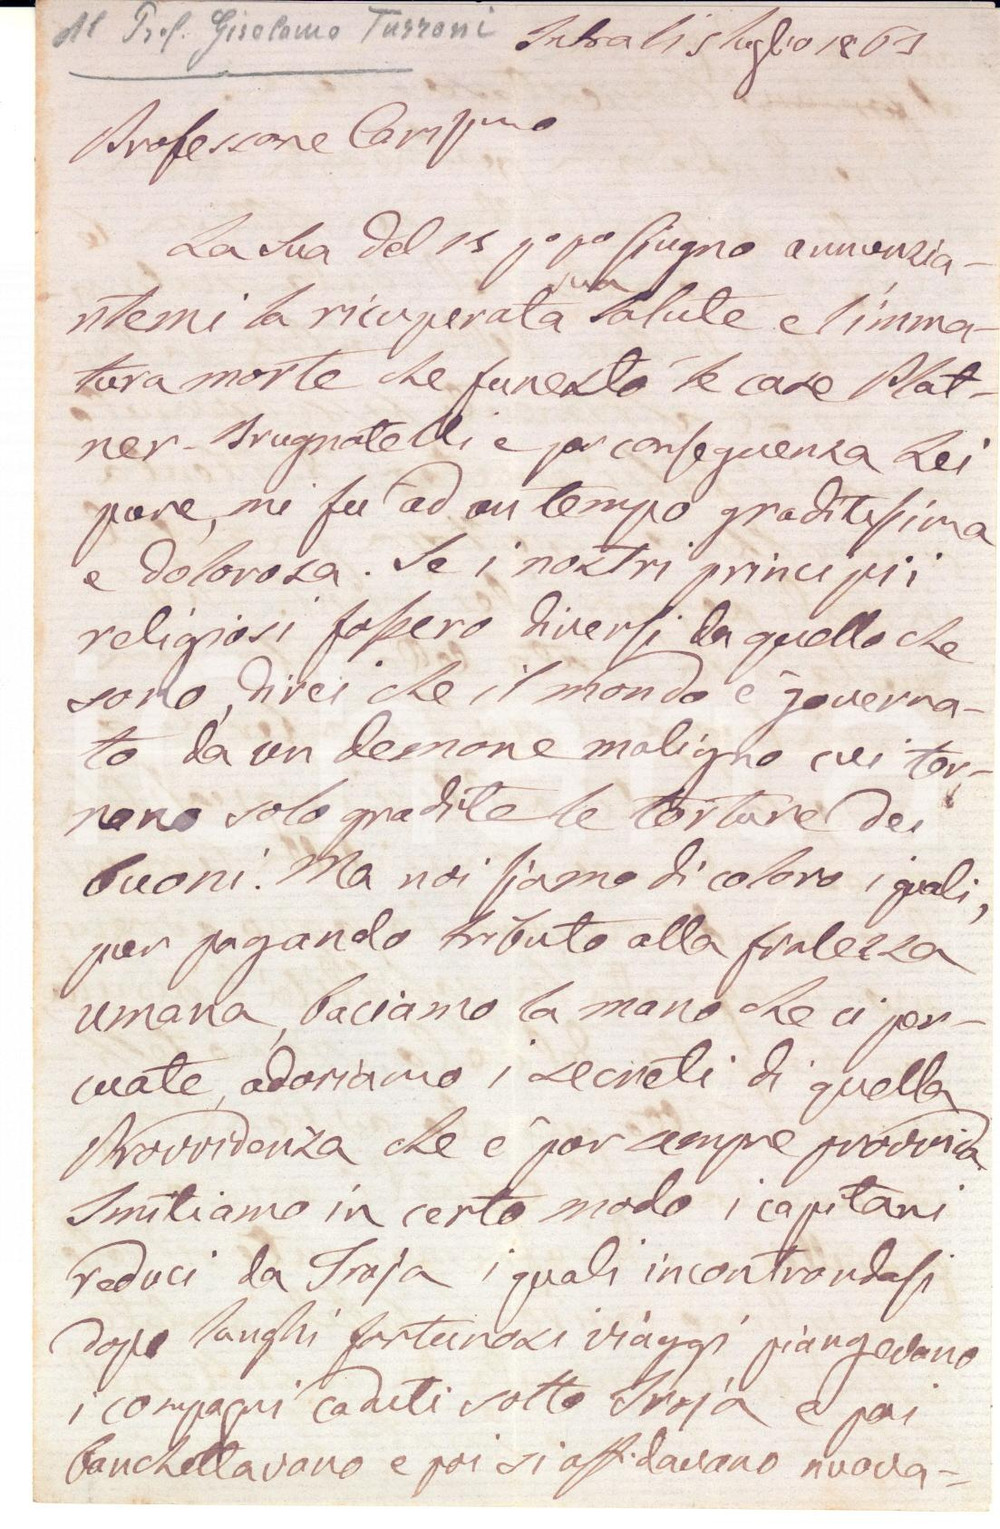 Al Prof. Girolamo Turroni
Intra li 5 luglio 1863
Professore Cariss.mo
La Sua del 15 p.o p.o Giugno annunzia-
ntemi la ricuperata sua salute e l'imma-
tura morte che funestò le case Plat-
ner-Brugnatelli e per conseguenza Lei
pure, mi fu ad un tempo graditissima
e dolorosa. Se i nostri principii
religiosi fossero diversi da quello che
sono, direi che il mondo è governa-
to da un demone maligno cui tor-
nano solo gradite le torture dei
buoni. Ma noi siamo di coloro i quali,
pur pagando tributo alla fralezza
umana, baciamo la mano che ci per-
cuote, adoriamo i secreti di quella
Provvidenza che è pur sempre provvida.
Imitiamo in certo modo i capitani
reduci da Troja i quali incontrandosi
dopo lunghi fortunosi viaggi piangevano
i compagni caduti sotto Troja e poi
banchettavano e poi si affidavano nuova-